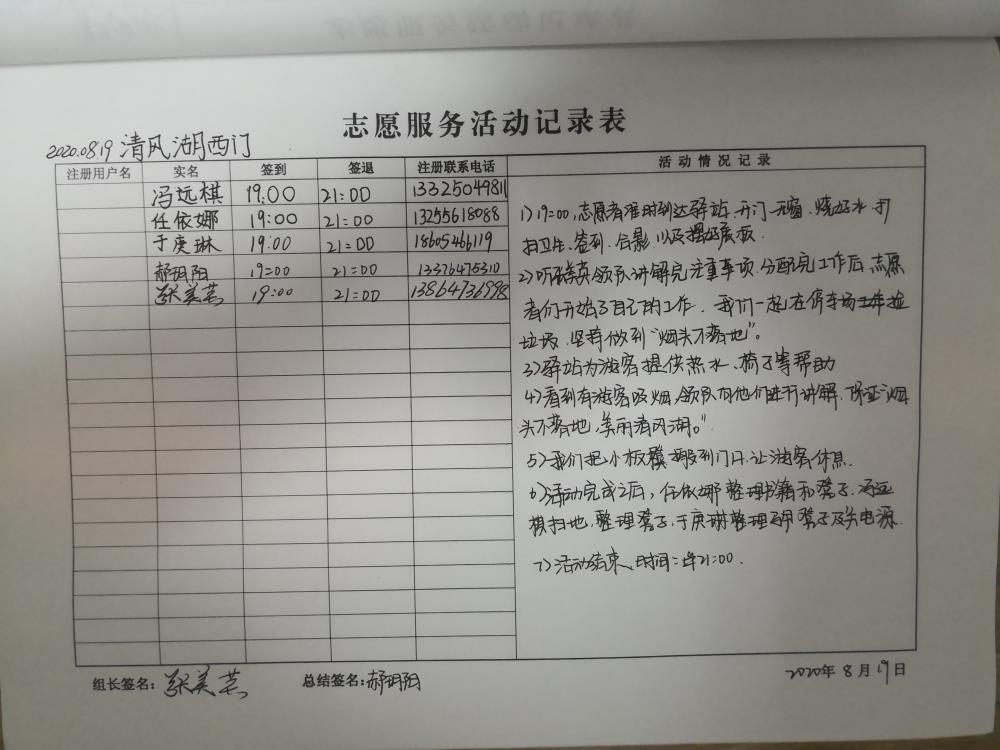 志愿服务活动记录表
2020.08.19 清风湖西门
注册用户名 实名 签到 签退 注册联系电话 活动情况记录
冯远棋 19:00 21:00 13325049811
任依娜 19:00 21:00 13255618088
于庚琳 19:00 21:00 18605466119
郝玥阳 19:00 21:00 13376475310
张美芸 19:00 21:00 13864736998
1)19:00,志愿者准时到达驿站.开门.无窗.烧好水.打
扫卫生.签到.合影.以及摆好展板.
2)听领队讲解完注意事项.分配完工作后,志愿
者们开始了自己的工作.我们一起在停车场捡
垃圾.坚持做到“烟头不落地”。
3)驿站为游客提供热水、椅子等帮助
4)看到有游客吸烟,领队向他们进行讲解.保证“烟
头不落地,美丽清风湖。”
5)我们把小板凳搬到门口.让游客休息.
6)活动完成之后,任依娜整理书籍和凳子.冯远
棋扫地,整理凳子.于庚琳整理凳子及关电源.
7)活动结束、时间:21:00.
组长签名:张美芸 总结签名:郝玥阳 2020年8月19日